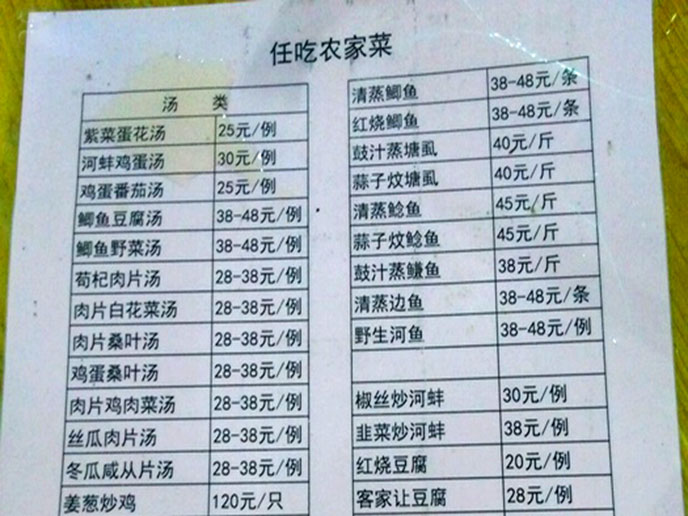 任吃农家菜
汤 类
紫菜蛋花汤 25元/例
河蚌鸡蛋汤 30元/例
鸡蛋番茄汤 25元/例
鲫鱼豆腐汤 38-48元/例
鲫鱼野菜汤 38-48元/例
荀杞肉片汤 28-38元/例
肉片白花菜汤 28-38元/例
肉片桑叶汤 28-38元/例
鸡蛋桑叶汤 28-38元/例
肉片鸡肉菜汤 28-38元/例
丝瓜肉片汤 28-38元/例
冬瓜咸从片汤 28-38元/例
姜葱炒鸡 120元/只
清蒸鲫鱼 38-48元/条
红烧鲫鱼 38-48元/条
鼓汁蒸塘虱 40元/斤
蒜子炆塘虱 40元/斤
清蒸鲶鱼 45元/斤
蒜子炆鲶鱼 45元/斤
鼓汁蒸鳙鱼 38元/斤
清蒸边鱼 38-48元/条
野生河鱼 38-48元/例
椒丝炒河蚌 30元/例
韭菜炒河蚌 38元/例
红烧豆腐 20元/例
客家让豆腐 28元/例